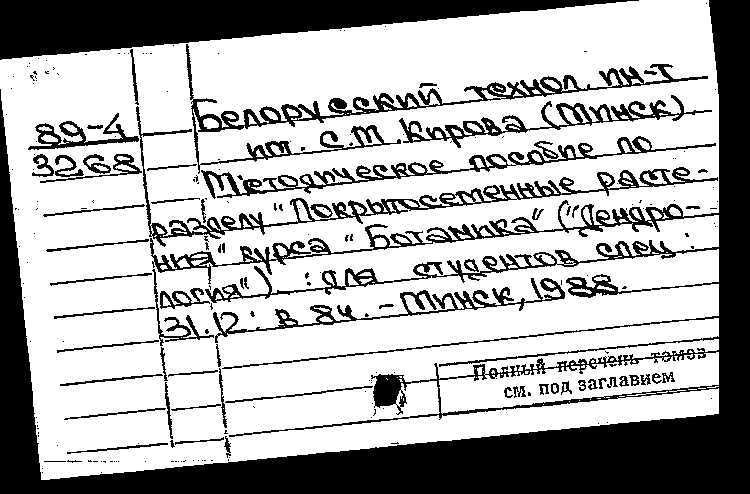 89-4
3268
Белорусский технол. ин-т
им. С.М. Кирова (Минск).
Методическое пособие по
разделу "Покрытосеменные расте-
ния" курса "Ботаника" ("Дендро-
логия") : для студентов спец.:
31.12: В 8ч. - Минск, 1988.
Полный перечень томов
см. под заглавием